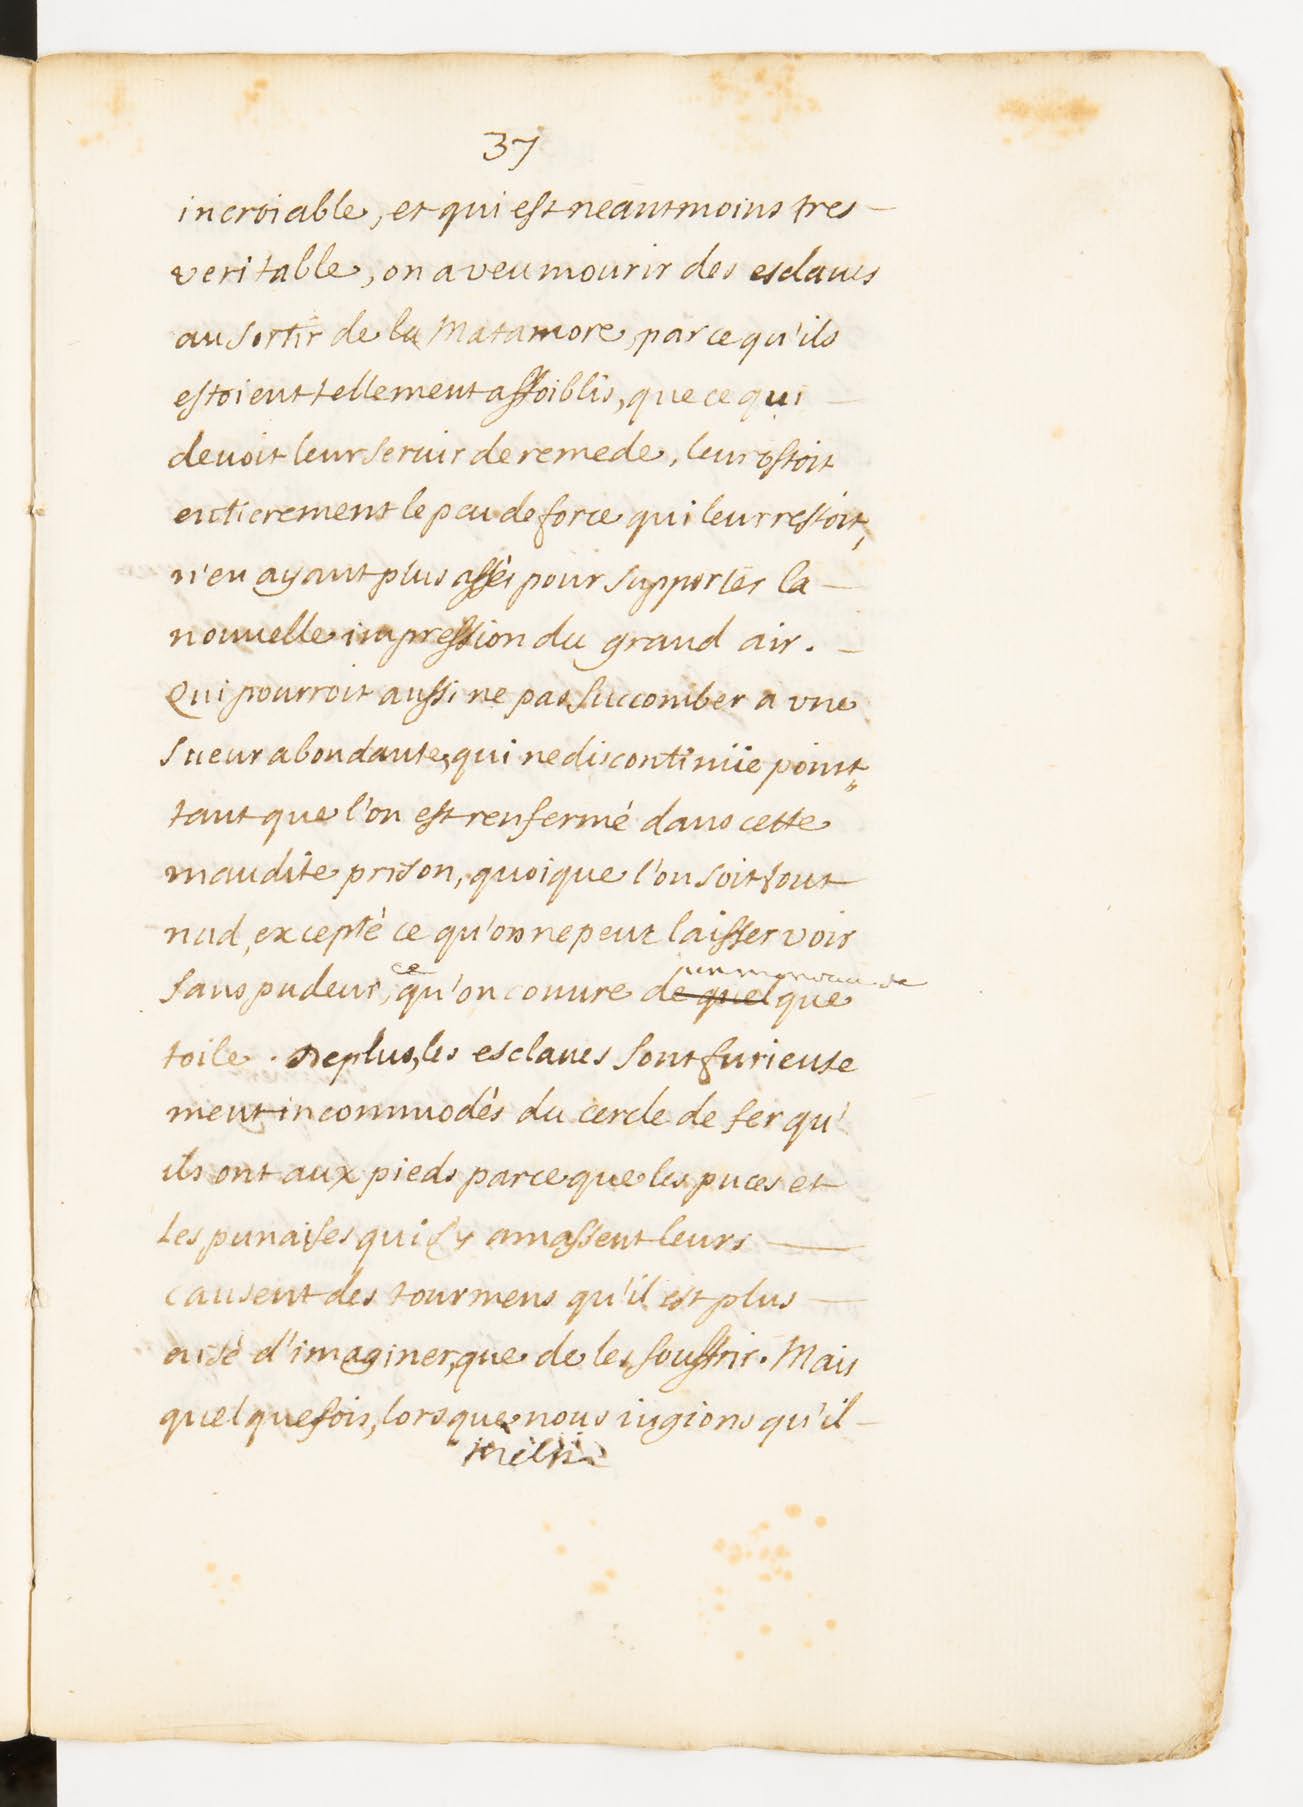 37
incroiable, et qui est neantmoins tres
veritable, on a veu mourir des esclaues
au sortir de la Matamore, parce qu'ils
estoient tellement affoiblis, que ce qui
deuoit leur seruir de remede, leur ostoit
entierement le peu de force qui leur restoit,
n'en ayant plus assés pour supporter la
nouuelle impression du grand air.
Qui pourroit aussi ne pas succomber a vne
sueur abondante, qui ne discontinüe point
tant que l'on est renfermé dans cette
maudite prison, quoique l'on soit tout
nud, excepté ce qu'on ne peut laisser voir
ce un morceau de
sans pudeur, qu'on couure de quelque
toile. De plus, les esclaues sont furieuse
ment incommodés du cercle de fer qu'
ils ont aux pieds parce que les puces et
les punaises qui s'y amassent leurs
causent des tourmens qu'il est plus
aisé d'imaginer, que de les souffrir. Mais
quelquefois, lorsque nous iugions qu'il